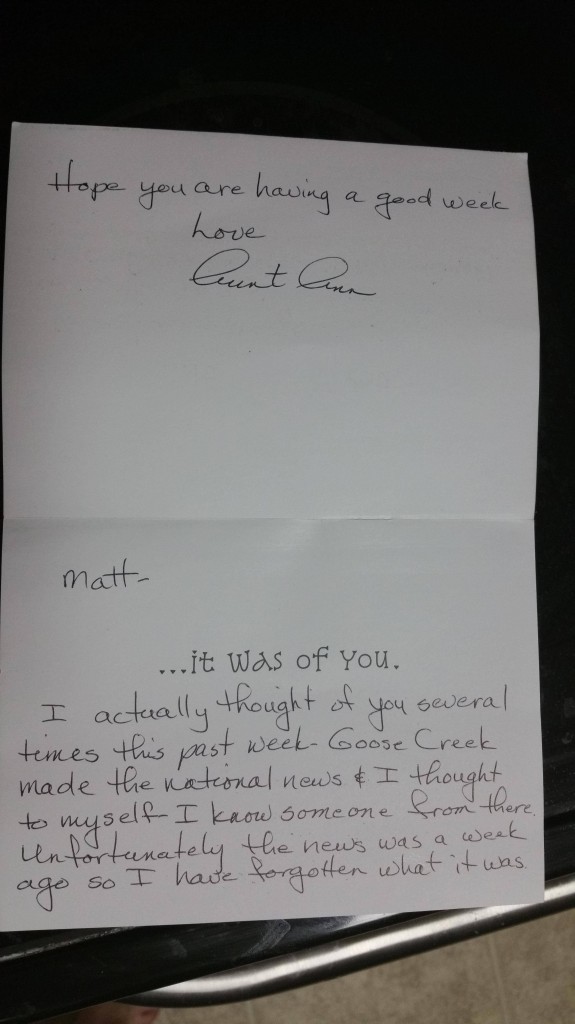 Hope you are having a good week
Love
Aunt Ann
Matt-
...it was of you.
I actually thought of you several
times this past week- Goose Creek
made the national news & I thought
to myself- I know someone from there.
Unfortunately the news was a week
ago so I have forgotten what it was.